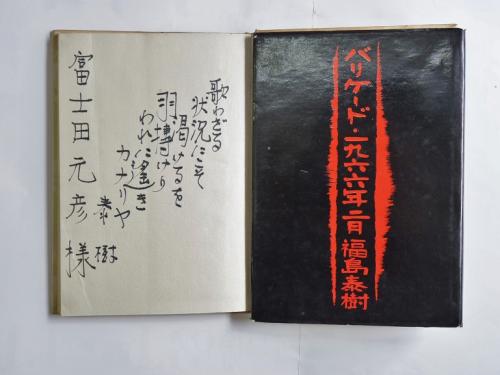 バリケード・一九六六年二月 福島泰樹
歌わざる
状況にこそ
渇けるを
羽搏けり
われに遙き
カナリヤ
泰樹
富士田元彦様